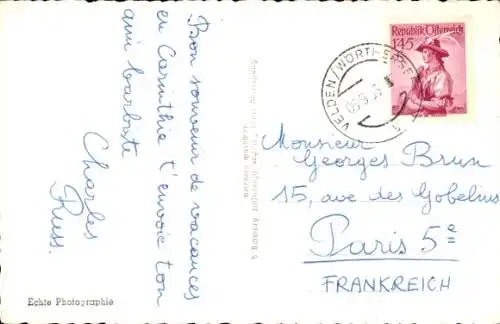 Bon souvenir de vacances
en Carinthie t'envoie ton
ami barbute
Charles
Russ.
Echte Photographie
Republik Österreich
1.45
VELDEN/WÖRTHERSEE
Monsieur
Georges Brun
15, ave des Gobelins
Paris 5e
FRANKREICH